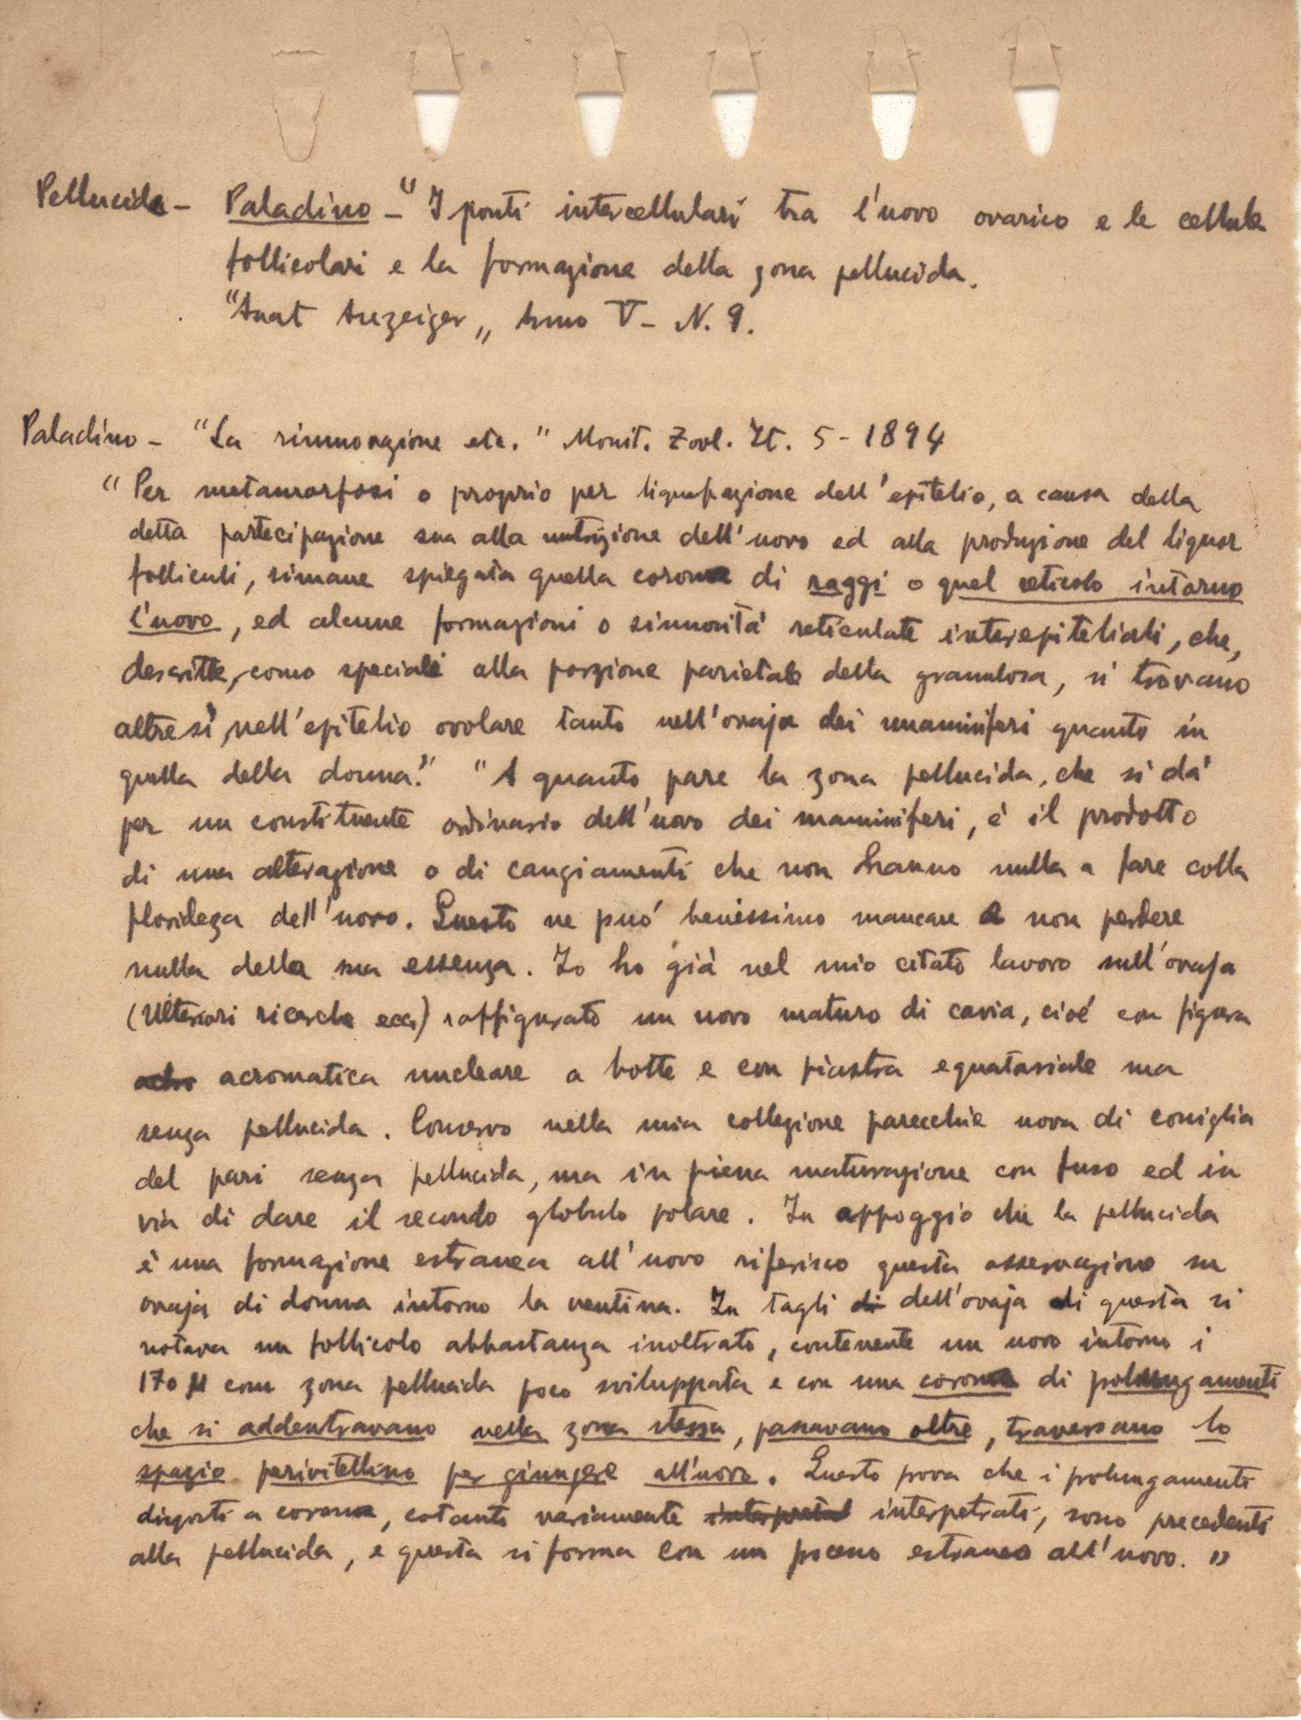 Pellucida - Paladino - "I ponti intercellulari tra l'uovo ovarico e le cellule
follicolari e la formazione della zona pellucida.
"Anat Anzeiger„ Anno V - N. 9.
Paladino - "La rinnovazione etc." Monit. Zool. It. 5 - 1894
"Per metamorfosi o proprio per liquefazione dell'epitelio, a causa della
detta partecipazione sua alla nutrizione dell'uovo ed alla produzione del liquor
folliculi, rimane spiegata quella corona di raggi o quel reticolo intorno
l'uovo, ed alcune formazioni o sinuosità reticulate interepiteliali, che,
descritte, come speciali alla porzione parietale della granulosa, si trovano
altresì nell'epitelio ovulare tanto nell'ovaja dei mammiferi quanto in
quella della donna." "A quanto pare la zona pellucida, che si dà
per un constituente ordinario dell'uovo dei mammiferi, è il prodotto
di una alterazione o di cangiamenti che non hanno nulla a fare colla
floridezza dell'uovo. Questo ne può benissimo mancare e non perdere
nulla della sua essenza. Io ho già nel mio citato lavoro sull'ovaja
(Ulteriori ricerche ecc) raffigurato un uovo maturo di cavia, cioè con figura
acromatica nucleare a botte e con piastra equatoriale ma
senza pellucida. Conservo nella mia collezione parecchie uova di coniglia
del pari senza pellucida, ma in piena maturazione con fuso ed in
via di dare il secondo globulo polare. In appoggio che la pellucida
è una formazione estranea all'uovo riferisco questa osservazione su
ovaja di donna intorno la ventina. In tagli di dell'ovaja di questa si
notava un follicolo abbastanza inoltrato, contenente un uovo intorno i
170 µ con zona pellucida poco sviluppata e con una corona di prolungamenti
che si addentravano nella zona stessa, passavano oltre, traversano lo
spazio perivitellino per giungere all'uovo. Questo prova che i prolungamenti
disposti a corona, cotanto variamente interpretati interpetrati, sono precedenti
alla pellucida, e questa si forma con un processo estraneo all'uovo. "